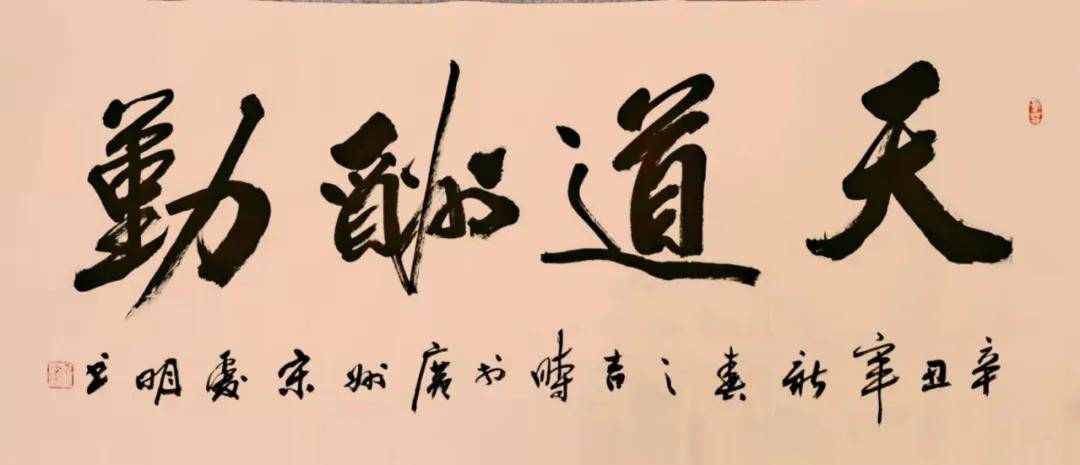 天道酬勤
辛丑年新春之吉時於廣州宋明书